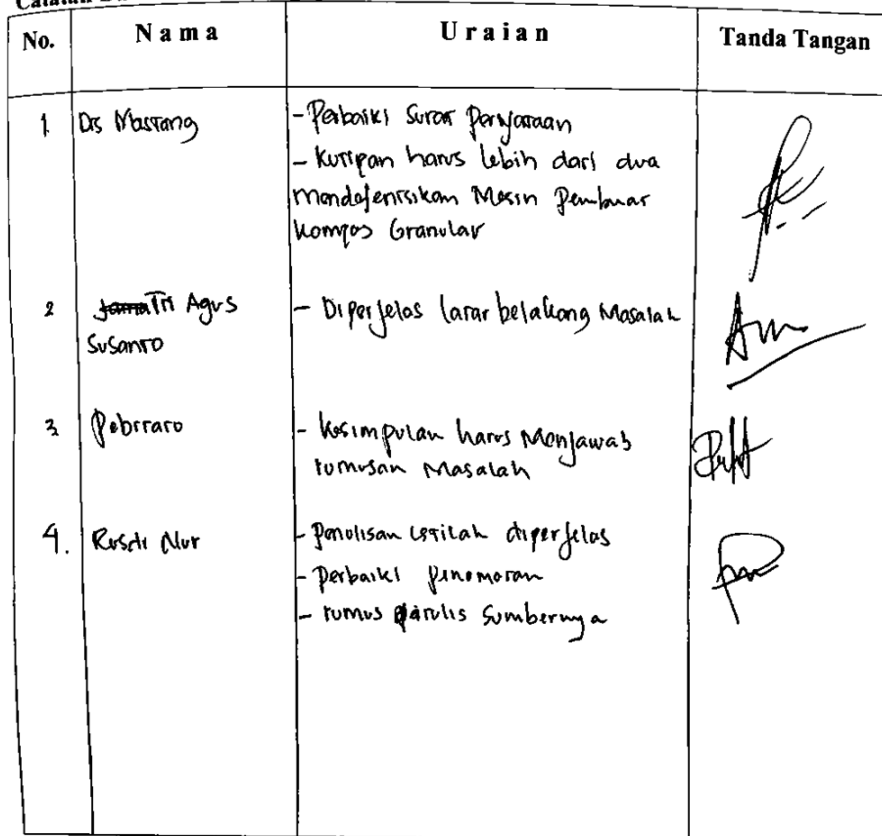 No. Nama Uraian Tanda Tangan
1. Drs Mastang - Perbaiki Surat Pernyataan
- Kutipan harus lebih dari dua
mendefenisikan Mesin Pembuat
Kompos Granular
2 Tri Agus - Diperjelas latar belakang Masalah
Susanto
3 - Kesimpulan harus Menjawab
rumusan Masalah
4. Rusdi Nur - Penulisan istilah diperjelas
- Perbaiki penomoran
- rumus ditulis Sumbernya